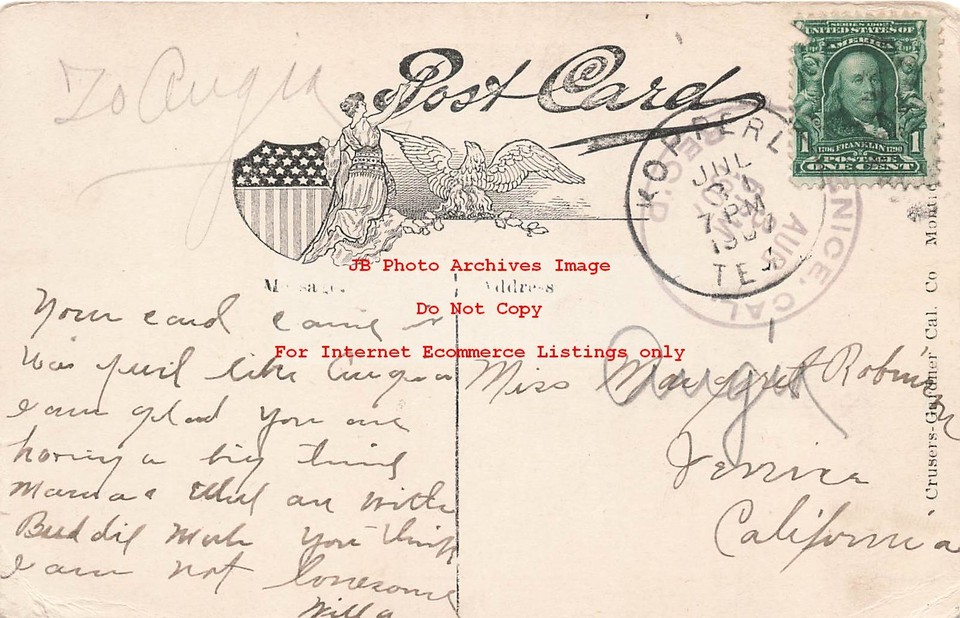 To Angia
Post Card
SERIES 1902
UNITED STATES OF
AMERICA
1 1
1706 FRANKLIN 1790
POSTAGE
ONE CENT
KOPPERL
JUL
7 PM
TEX
REC'D
AUG
VENICE, CAL.
JB Photo Archives Image
Message. Address
Do Not Copy
For Internet Ecommerce Listings only
Your card came &
was just like Angia
I am glad you are
having a big time
Mama & Ethel are with
Buddie
you think
I am not lonesome
Willa
Miss Margaret Robinson
Angia
Venice
California
Crusers-Gardner Cal. Co